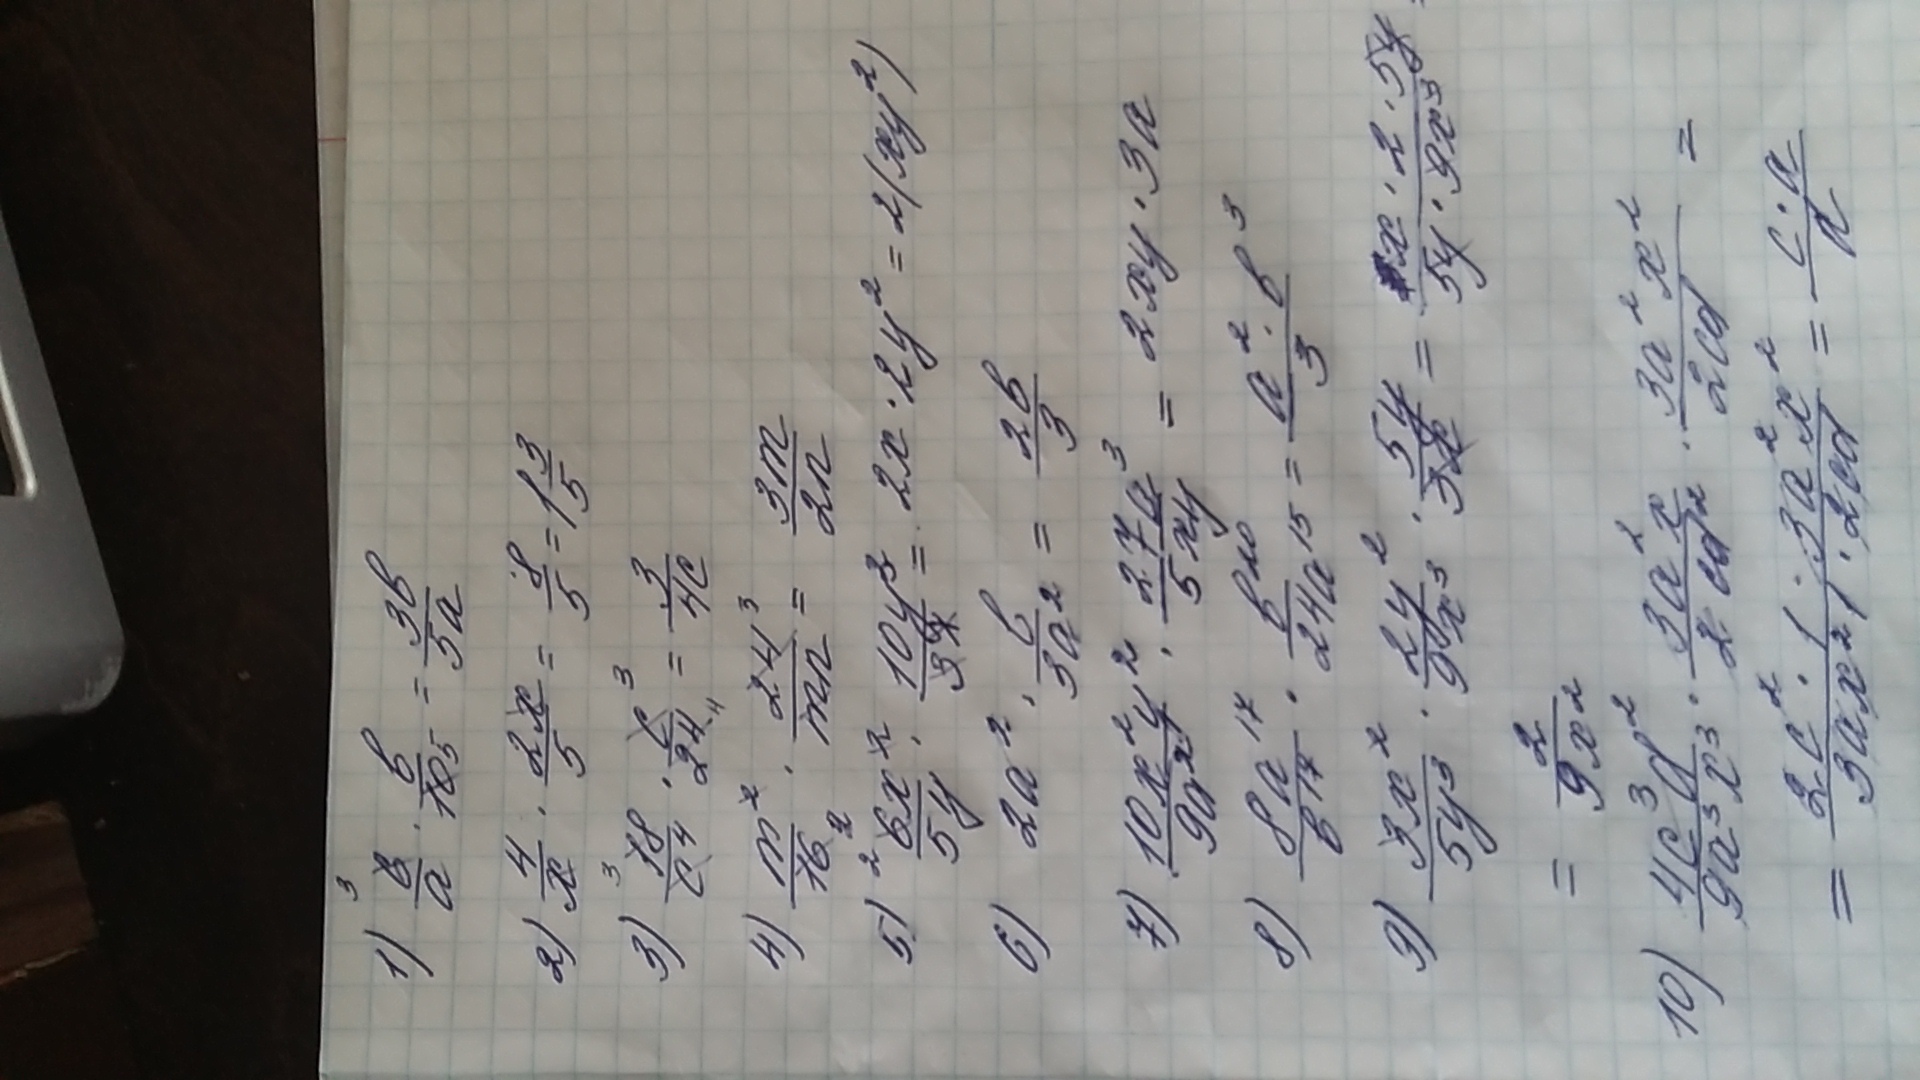 1) 6/a · b/10 = 3b/5a
2) 4/x · 2x/5 = 8/5 = 1 3/5
3) 18/c⁴ · c³/24 = 3/4c
4) m²/16 · 24³/mn = 3m/2n
5) 6x²/5y · 10y³/3x = 2x · 2y² = 2(xy²)
6) 2a² · b/3a² = 2b/3
7) 10x²y²/9a² · 27a³/5xy = 2xy · 3a
8) 8a¹⁷/b¹⁷ · b²⁰/24a¹⁵ = a² · b³/3
9) 3x²/5y³ · 2y²/9x³ · 5y/3x = x · 2 · 5y/5y · 9x³ =
= 2/9x²
10) 4c³d²/9a³x³ · 3a²x/2cd² · 3a²x²/2cd =
= 2c² · 1 · 3a²x²/3ax² · 1 · 2cd = c · a/a